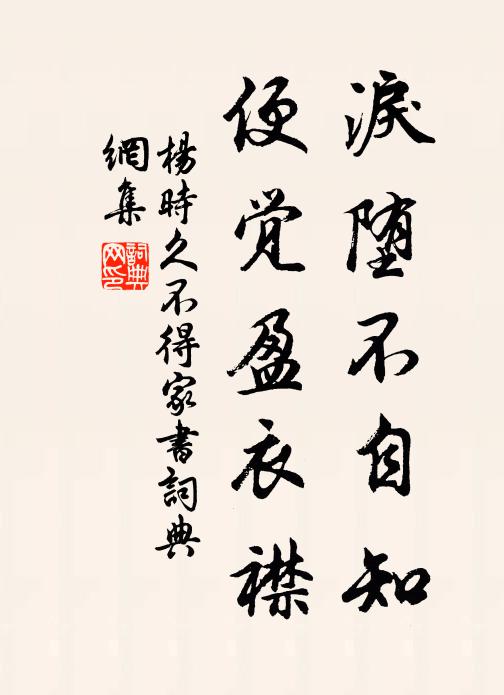 淚堕不自知
便覺盈衣襟
楊時久不得家書詞典
網集
詞典网印